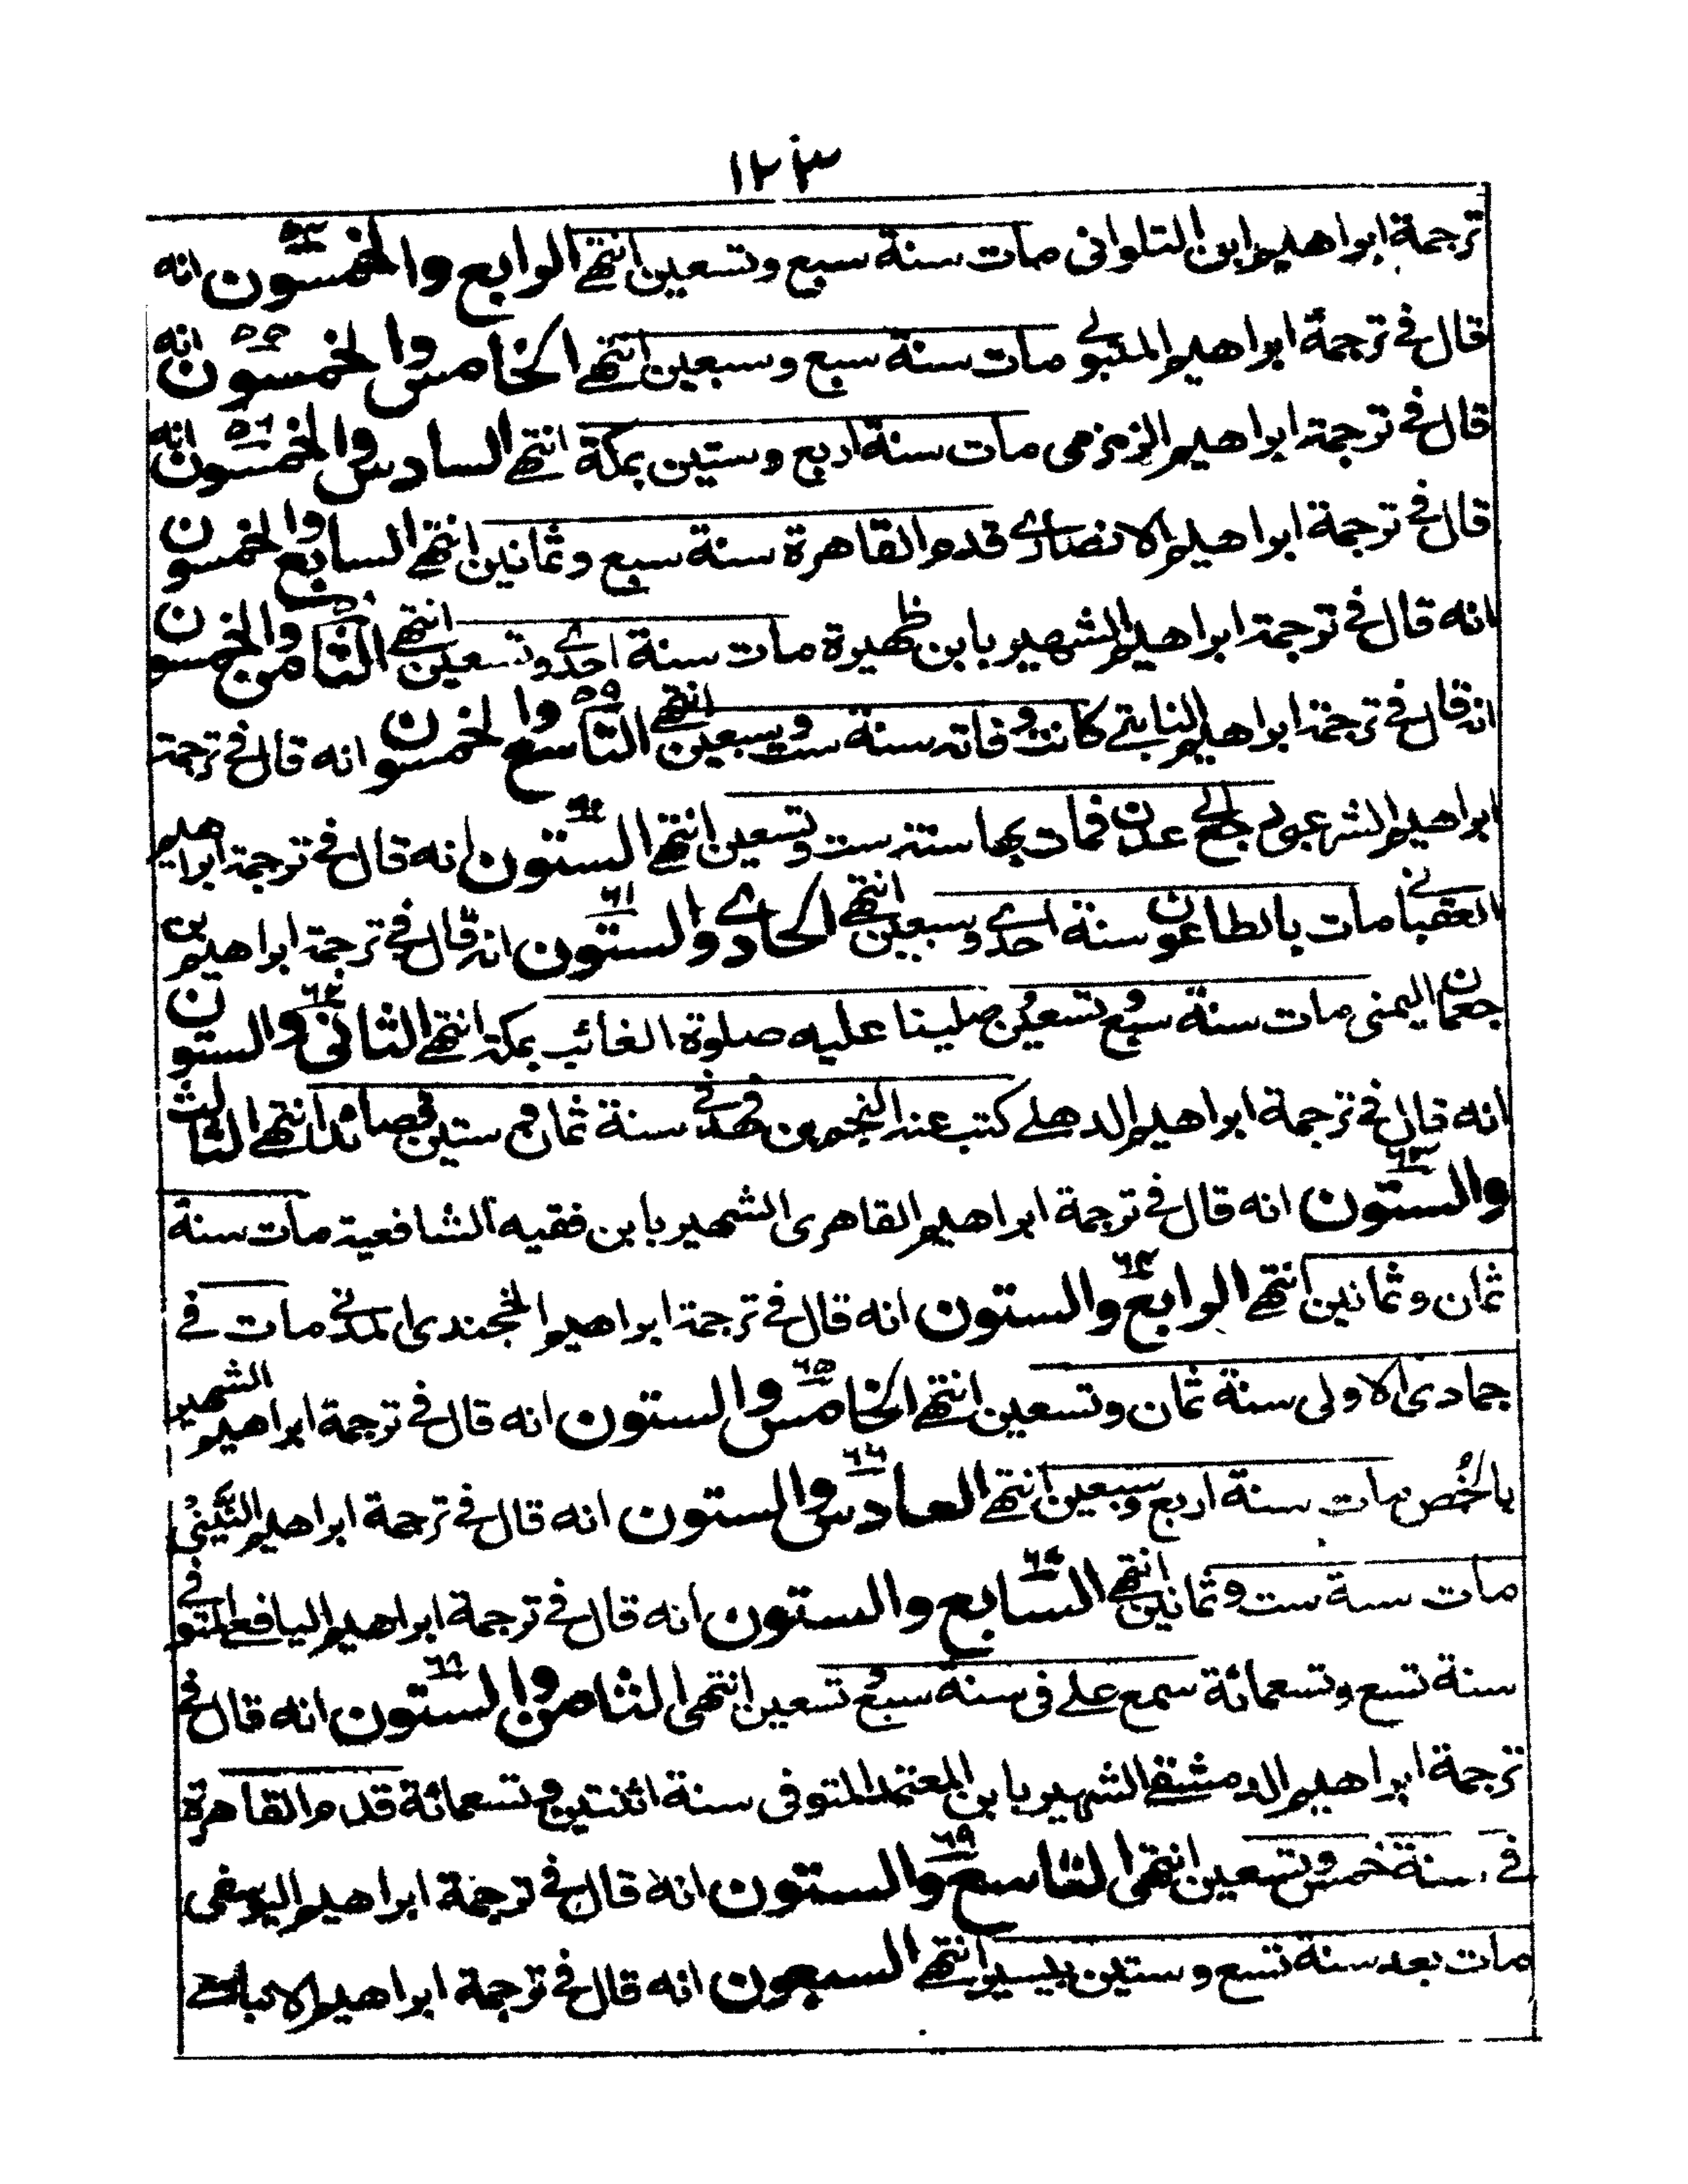 ١٢٣
ترجمة ابراهيم ابن التلوانى مات سنة سبع وتسعين انتهے الرابع والخمسون انه
قال فے ترجمة ابراهيم المتبولے مات سنة سبع وسبعين انتهے الخامس والخمسون انه
قال فے ترجمة ابراهيم الزمزمى مات سنة اربع وستين بمكة انتهے السادس والخمسون انه
قال فے ترجمة ابراهيم الانصارے قدم القاهرة سنة سبع وثمانين انتهے السابع والخمسون
انه قال فے ترجمة ابراهيم الشهير بابن ظهيرة مات سنة احدے وتسعين انتهے الثامن والخمسون
انه قال فے ترجمة ابراهيم النابتے كانت وفاته سنة ست وسبعين انتهے التاسع والخمسون انه قال فے ترجمة
ابراهيم الشرعبے الے عدن فمات بها سنة ست وتسعين انتهے الستون انه قال فے ترجمة ابراهيم
العقبانے مات بالطاعون سنة احدے وسبعين انتهے الحادے والستون انه قال فے ترجمة ابراهيم بن
جعمان اليمنى مات سنة سبع وتسعين صلينا عليه صلوة الغائب بمكة انتهے الثانى والستون
انه قال فے ترجمة ابراهيم الدهلے كتب عنه النجم بن فهد فے سنة ثمان وستين قصائد انتهے الثالث
والستون انه قال فے ترجمة ابراهيم القاهرى الشهير بابن فقيه الشافعية مات سنة
ثمان وثمانين انتهے الرابع والستون انه قال فے ترجمة ابراهيم الخجندى المدنے مات فے
جمادى الاولى سنة ثمان وتسعين انتهے الخامس والستون انه قال فے ترجمة ابراهيم الشهير
بالخُص مات سنة اربع وسبعين انتهے السادس والستون انه قال فے ترجمة ابراهيم
مات سنة ست وثمانين انتهے السابع والستون انه قال فے ترجمة ابراهيم اليافعے المتوفے
سنة تسع وتسعمائة سمع علے فى سنة سبع وتسعين انتهى الثامن والستون انه قال فے
ترجمة ابراهيم الدمشقے الشهير بابن المعتمد المتوفى سنة اثنتين وتسعمائة قدم القاهرة
فے سنة خمس وتسعين انتهى التاسع والستون انه قال فے ترجمة ابراهيم اليوسفى
مات بعد سنة تسع وستين بيسير انتهے السبعون انه قال فے ترجمة ابراهيم